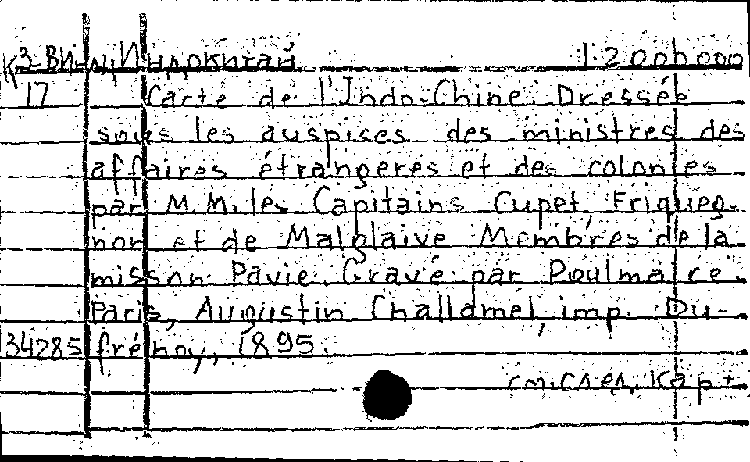 К 3-ВИ-д, Индокитай 1:2000000
17 Carte de l'Indo-Chine Dressée
sous les auspises des ministres des
affaires étrangères et des colonies
par M.M. les Capitains Cupet, Friqueg-
non et de Malglaive Membres de la
mission Pavie. Gravé par Poulmaire.
Paris, Augustin Challamel, imp. Du-
34285 frénoy, 1895.
см. след. карт